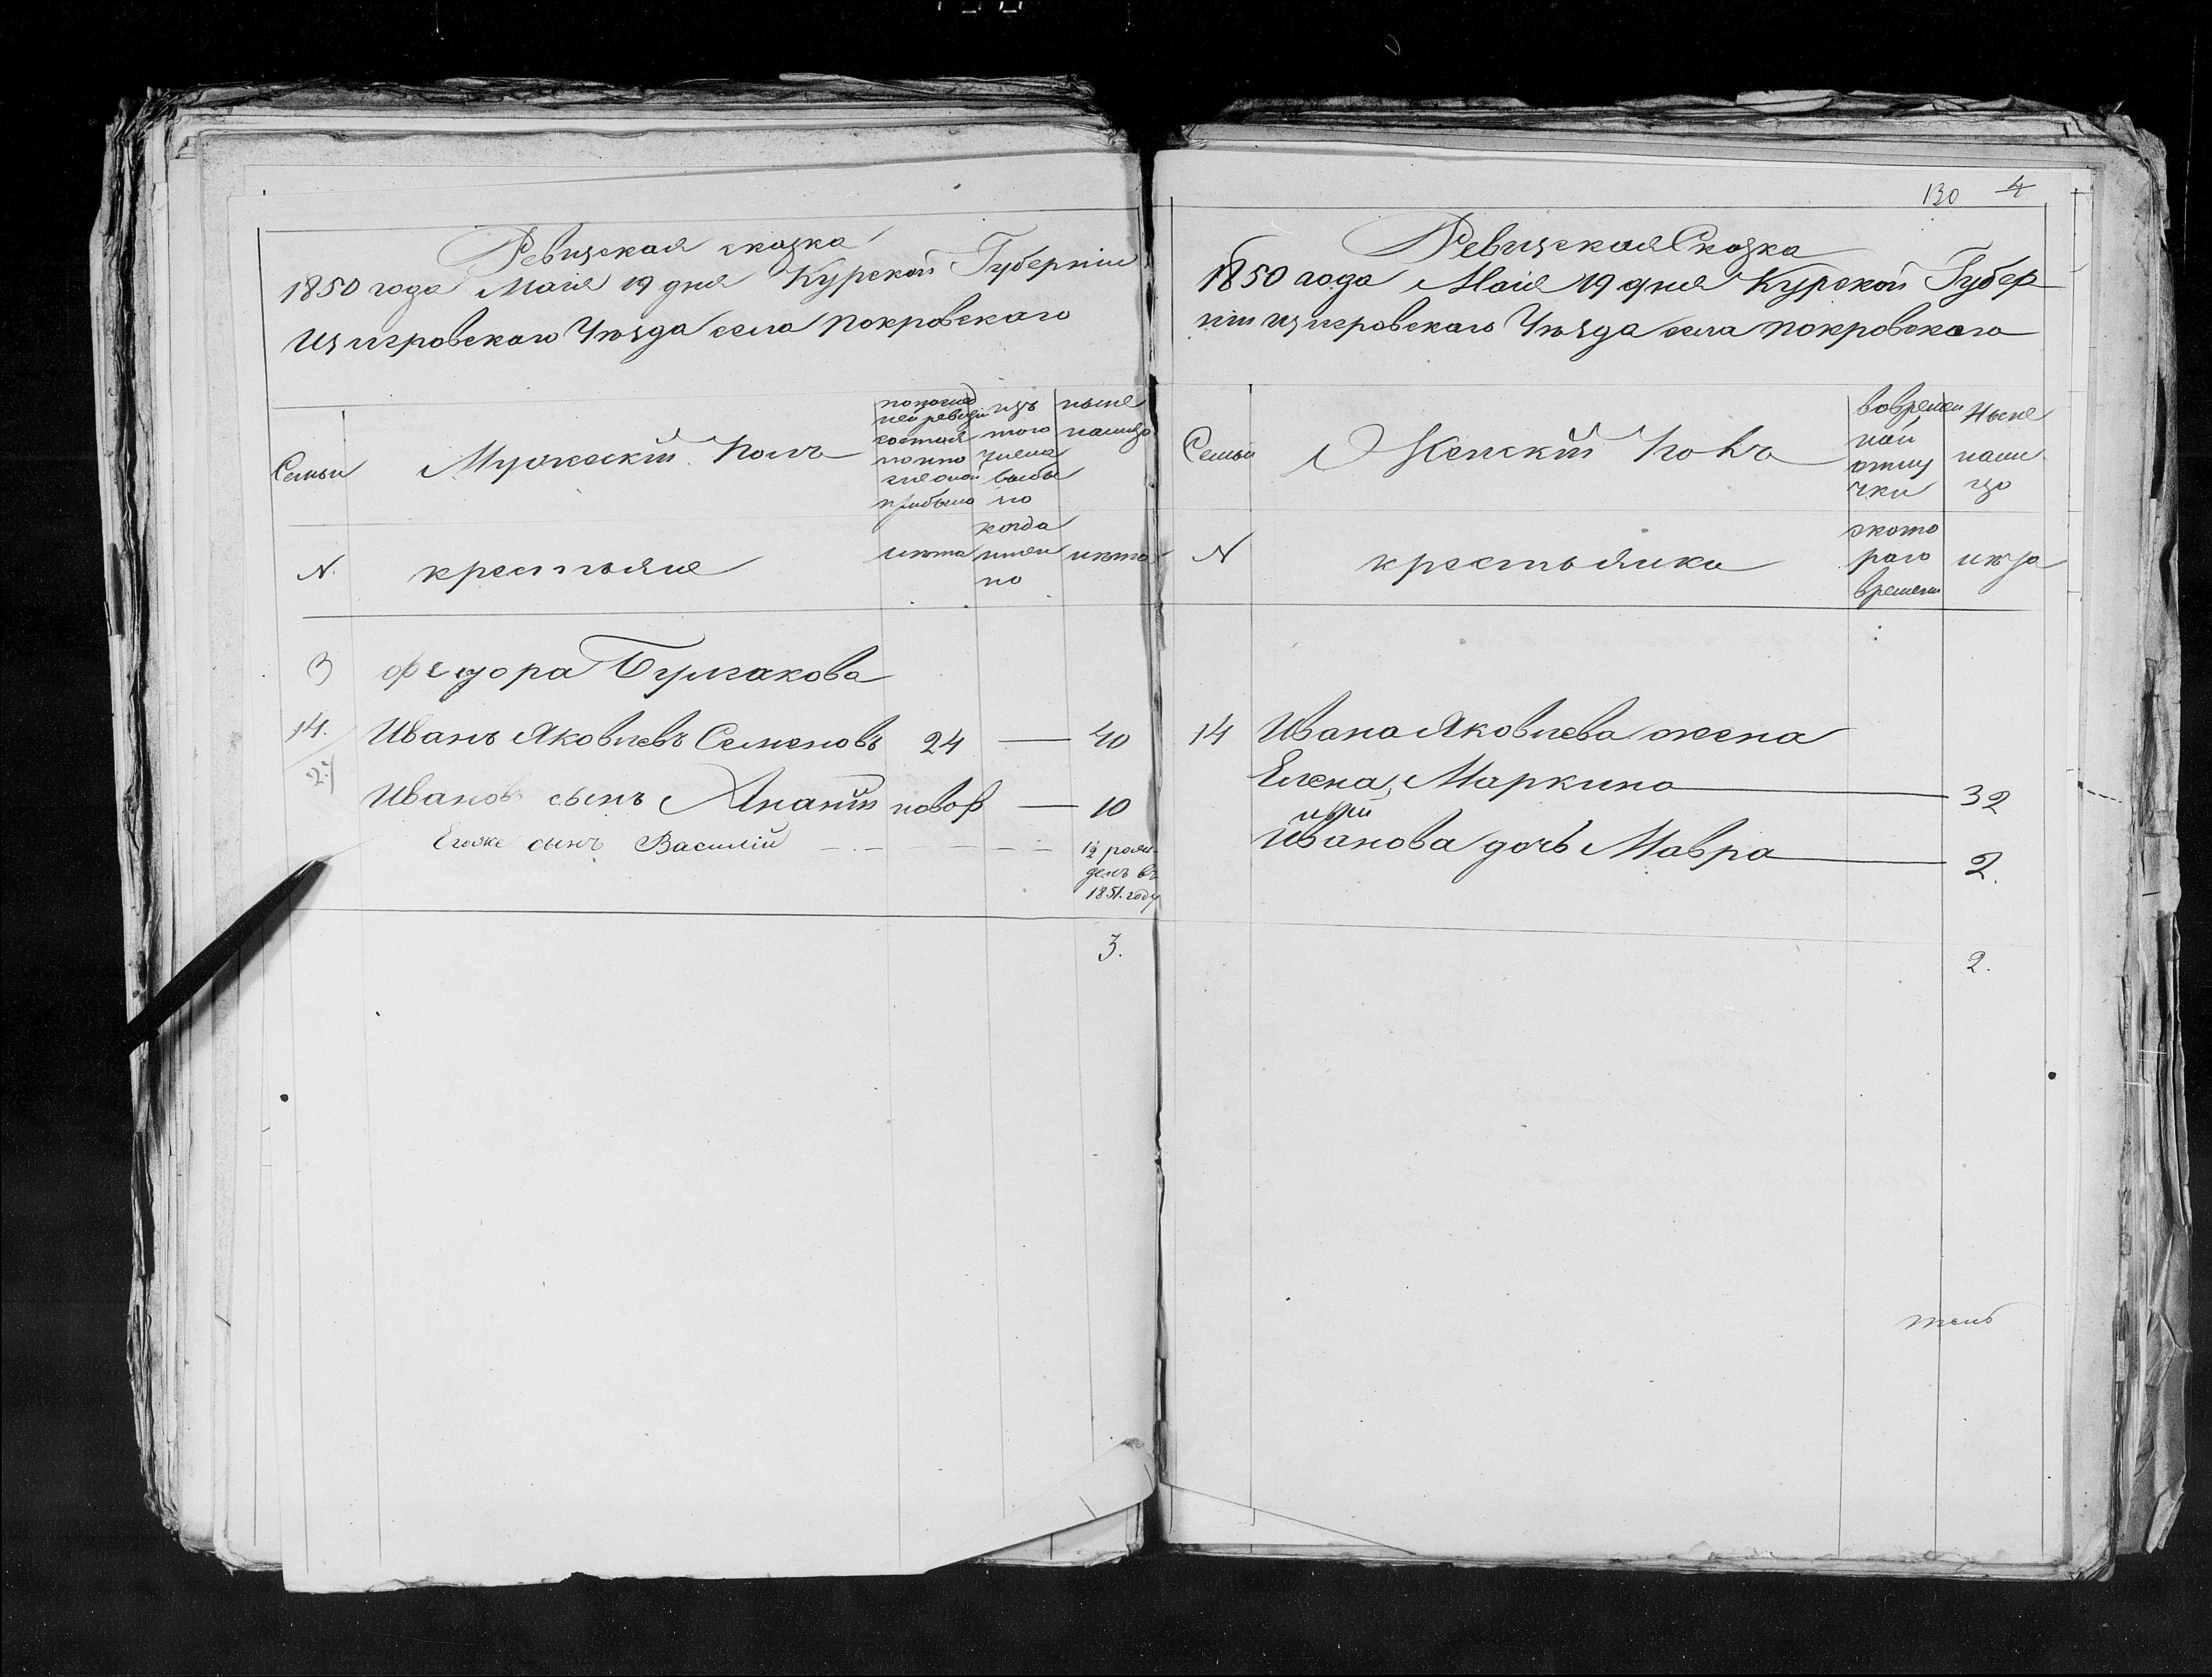 Ревизская сказка
1850 года Маія 19 дня Курской Губерніи
Щигровскаго Уѣзда села покровскаго
Семьи
Мужескій Полъ
по последней ревизіи состояло и после оной прибыло
изъ того числа выбыло
ныне налицо
N.
крестьяне
лѣта
когда имянно
лѣта
3 федора Булгакова
14. Иванъ Яковлевъ Семеновъ 24 — 40
27
Ивановъ сынъ Ананій новор — 10
Егоже сынъ Василій 1/2 рожденъ въ 1851. году
3.
130 4
Ревизская Сказка
1850 года Маія 19 дня Курской Губер
ніи щигровскаго Уѣзда села покровскаго
Семьи
Женскій Полъ
вовремен
ной
отлу
чки
Ныне
нали
цо
N
крестьянки
ското
раго
времени
лѣта
14 Ивана Яковлева жена
Елена Маркина 32
Иванова дочь Мавра 2.
2.